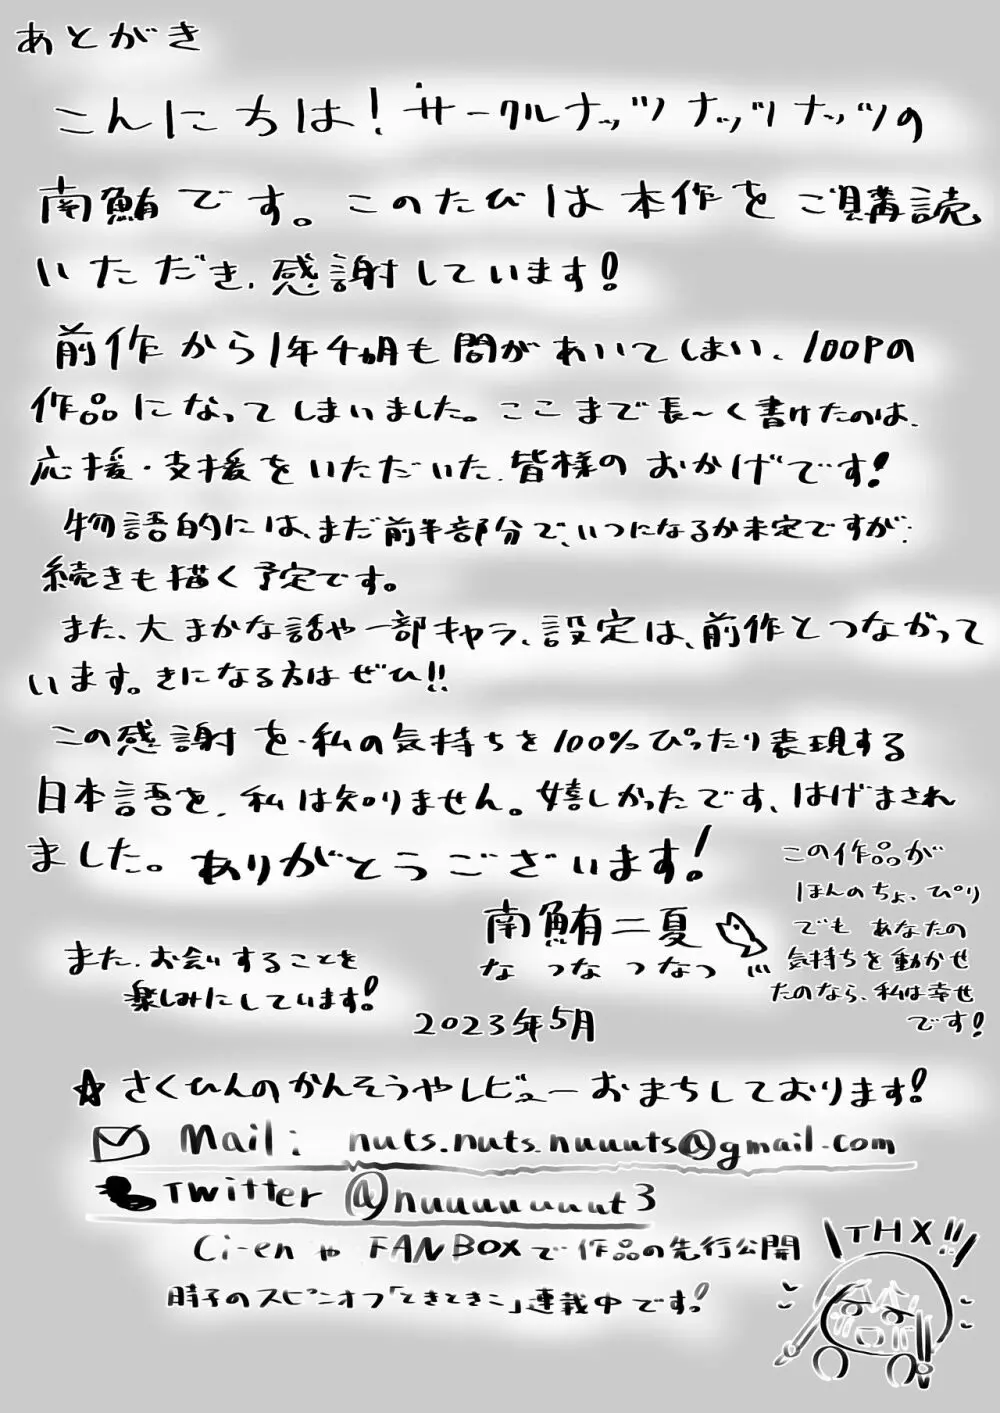 あとがき
こんにちは!サークルナッツナッツナッツの
南鮪です。このたびは本作をご購読
いただき、感謝しています!
前作から1年半期も間があいてしまい、100Pの
作品になってしまいました。ここまで長〜く書けたのは、
応援・支援をいただいた、皆様のおかげです!
物語的には、まだ前半部分で、いつになるか未定ですが、
続きも描く予定です。
また、大まかな話や一部キャラ、設定は、前作とつながって
います。きになる方はぜひ!!
この感謝を、私の気持ちを100%ぴったり表現する
日本語を、私は知りません。嬉しかったです、はげまされ
ました。ありがとうございます!
南鮪二夏
なつなつなつ
2023年5月
この作品が
ほんのちょっぴり
でもあなたの
気持ちを動かせ
たのなら、私は幸せ
です!
また、お会いすることを
楽しみにしています!
☆さくひんのかんそうやレビューおまちしております!
Mail: nuts.nuts.nuuuts@gmail.com
Twitter @nuuuuuuut3
Ci-enやFANBOXで作品の先行公開
時子のスピンオフ「ときときこ」連載中です!
THX!!